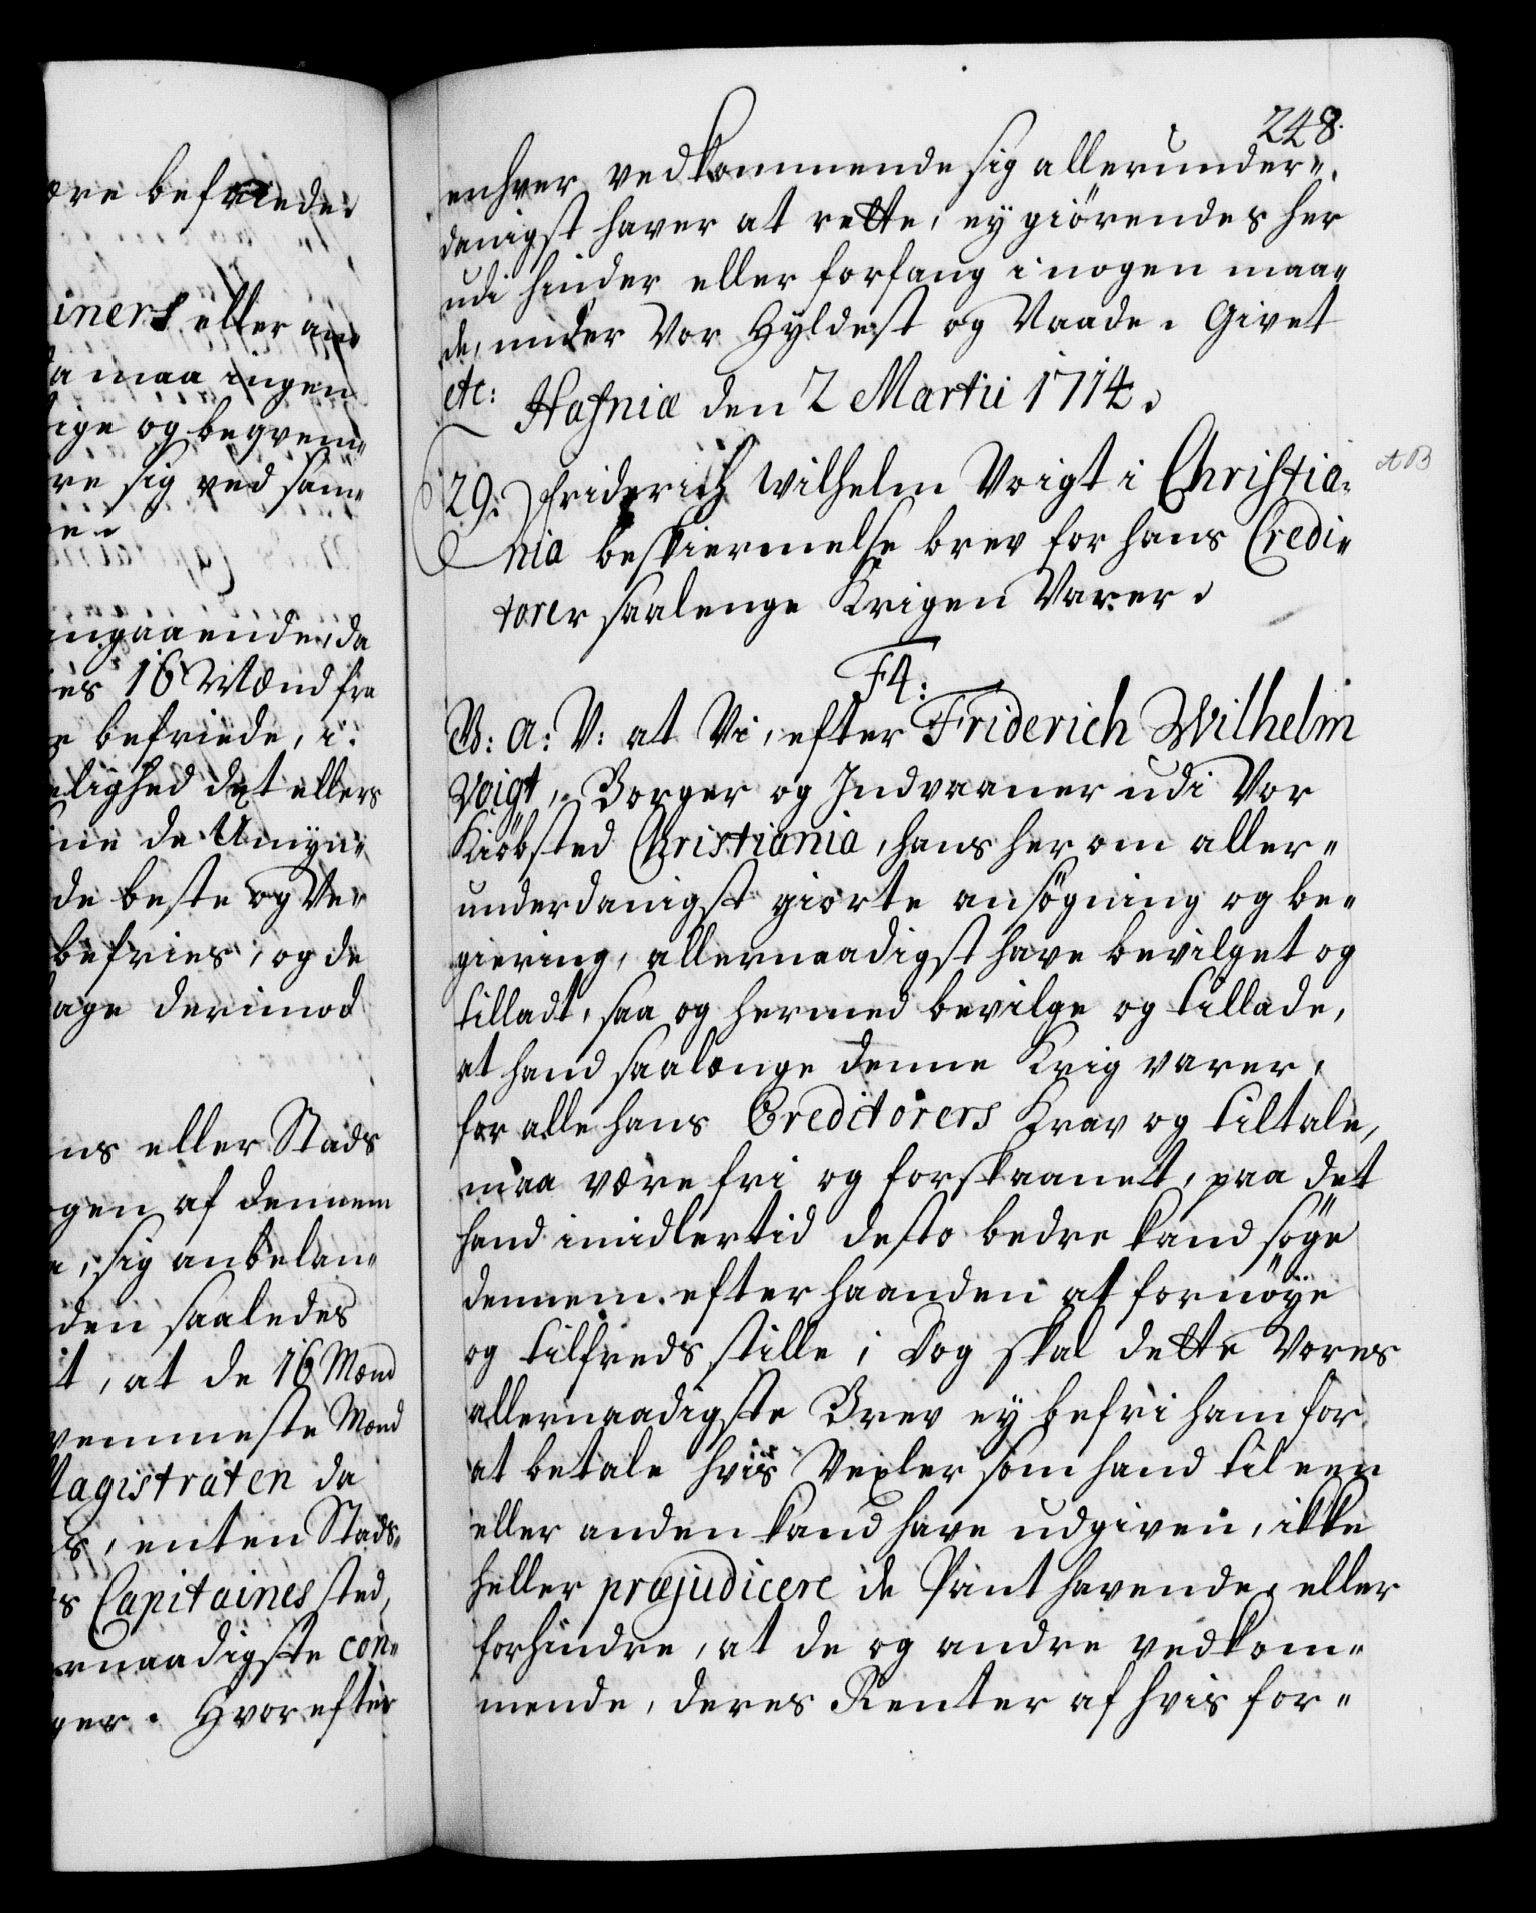 ære befriede.
iners eller an-
a maa ingen
ige og begvem-
re sig ved sam-
e.
angaaende, da
es 16 Mænd fra
befriede, i
elighed det ellers
ne de Umyn-
de beste og Ver
befries, og de
age derimod
ns eller Stads
gen af dennem
, sig anbelan-
den saaledes
t, at de 16 Mænd
vemmeste Mænd
Magistraten da
s, enten Stads-
s Capitaines sted,
rnaadigste con-
ger. Hvorefter
248.
enhver vedkommende sig allerunder-
danigst haver at rette, ey giörendes her
udi hinder eller forfang i nogen maa-
de, under Vor Hyldest og Naade. Givet
etc: Hafniæ den 2 Martii 1714.
AB
29. Friderich Wilhelm Voigt i Christia-
nia beskiermelse brev for hans Credi-
torer saalenge Krigen Varer.
F4:
G: A: V: at Vi, efter Friderich Wilhelm
Voigt, Borger og Indvaaner udi Vor
Kiöbsted Christiania, hans herom aller-
underdanigst giorte ansögning og be-
giering, allernaadigst have bevilget og
tilladt, saa og hermed bevilge og tillade,
at hand saalænge denne Krig varer,
for alle hans Creditorers Krav og tiltale,
maa være fri og forskaanet, paa det
hand imidlertid desto bedre kand söge
dennem efterhaanden at fornöye
og tilfredsstille; Dog skal dette Vores
allernaadigste Brev ey befri ham for
at betale hvis Vexler som hand til een
eller anden kand have udgiven, ikke
heller præjudicere de Pant havende, eller
forhindre, at de og andre vedkom-
mende, deres Renter af hvis for-